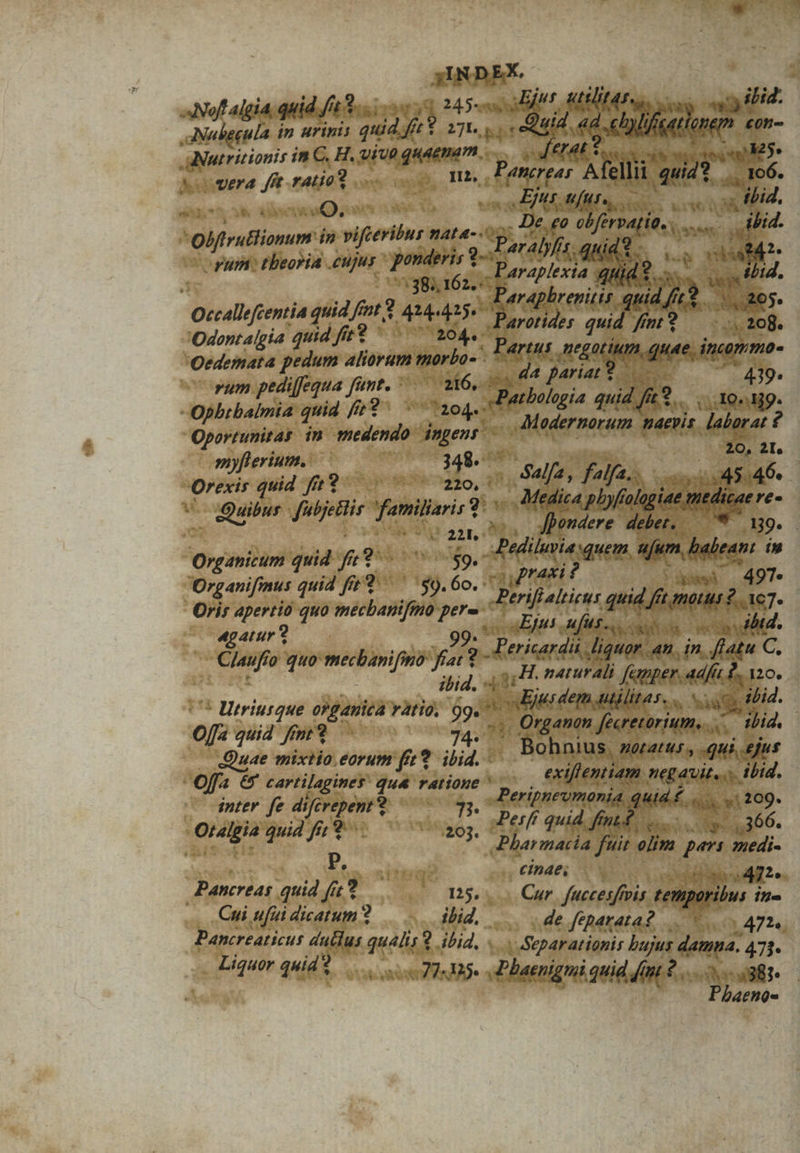 INDEX.
Noſtalgia quid ſit? 245.
Nubecula in urinis quid ſit? 271.
Nutritionis in C. H. vivo quaenam
vera ſit ratio? 112.
O.
Obſtructionum in viſceribus nata-
rum theoria cujus ponderis?
38. 162.
Occalleſcentia quid ſint? 424.425.
Odontalgia quid ſit? 204.
Oedemata pedum aliorum morbo-
rum pediſſequa ſunt. 216.
Ophthalmia quid ſit? 204.
Oportunitas in medendo ingens
myſterium. 348.
Orexis quid ſit? 220.
Quibus ſubjectis familiaris?
221.
Organicum quid ſit? 59.
Organiſmus quid ſit? 59. 60.
Oris apertio quo mechaniſmo per-
agatur? 99.
Clauſio quo mechaniſmo fiat?
ibid.
Utriusque organica ratio. 99.
Oſſa quid ſint? 74.
Quae mixtio eorum ſit? ibid.
Oſſa & cartilagines qua ratione
inter ſe diſcrepent? 73.
Otalgia quid ſit? 203.
P.
Pancreas quid ſit? 125.
Cui uſui dicatum? ibid.
Pancreaticus ductus qualis? ibid.
Liquor quid? 77. 125.
Ejus utilitas. ibid.
Quid ad chylificationem con-
ferat? 125.
Pancreas Aſellii quid? 106.
Ejus uſus. ibid.
De eo obſervatio. ibid.
Paralyſis quid? 242.
Paraplexia quid? ibid.
Paraphrenitis quid ſit? 205.
Parotides quid ſint? 208.
Partus negotium quae incommo-
da pariat? 439.
Pathologia quid ſit? 10. 139.
Modernorum naevis laborat?
20. 21.
Salſa, falſa. 45 46.
Medica phyſiologiae medicae re-
ſpondere debet. 139.
Pediluvia quem uſum habeant in
praxi? 497.
Periſtalticus quid ſit motus? 107.
Ejus uſus. ibid.
Pericardii liquor an in ſtatu C.
H. naturali ſemper adſit? 120.
Ejusdem utilitas. ibid.
Organon ſecretorium. ibid.
Bohnius notatus, qui ejus
exiſtentiam negavit. ibid.
Peripnevmonia quid? 209.
Pesſi quid ſint? 366.
Pharmacia fuit olim pars medi-
cinae. 472.
Cur ſuccesſivis temporibus in-
de ſeparata? 472.
Separationis hujus damna. 473.
Phaenigmi quid ſint? 383.
Phaeno-